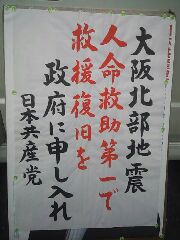 大阪北部地震
人命救助第一で
救援復旧を
政府に申し入れ
日本共産党